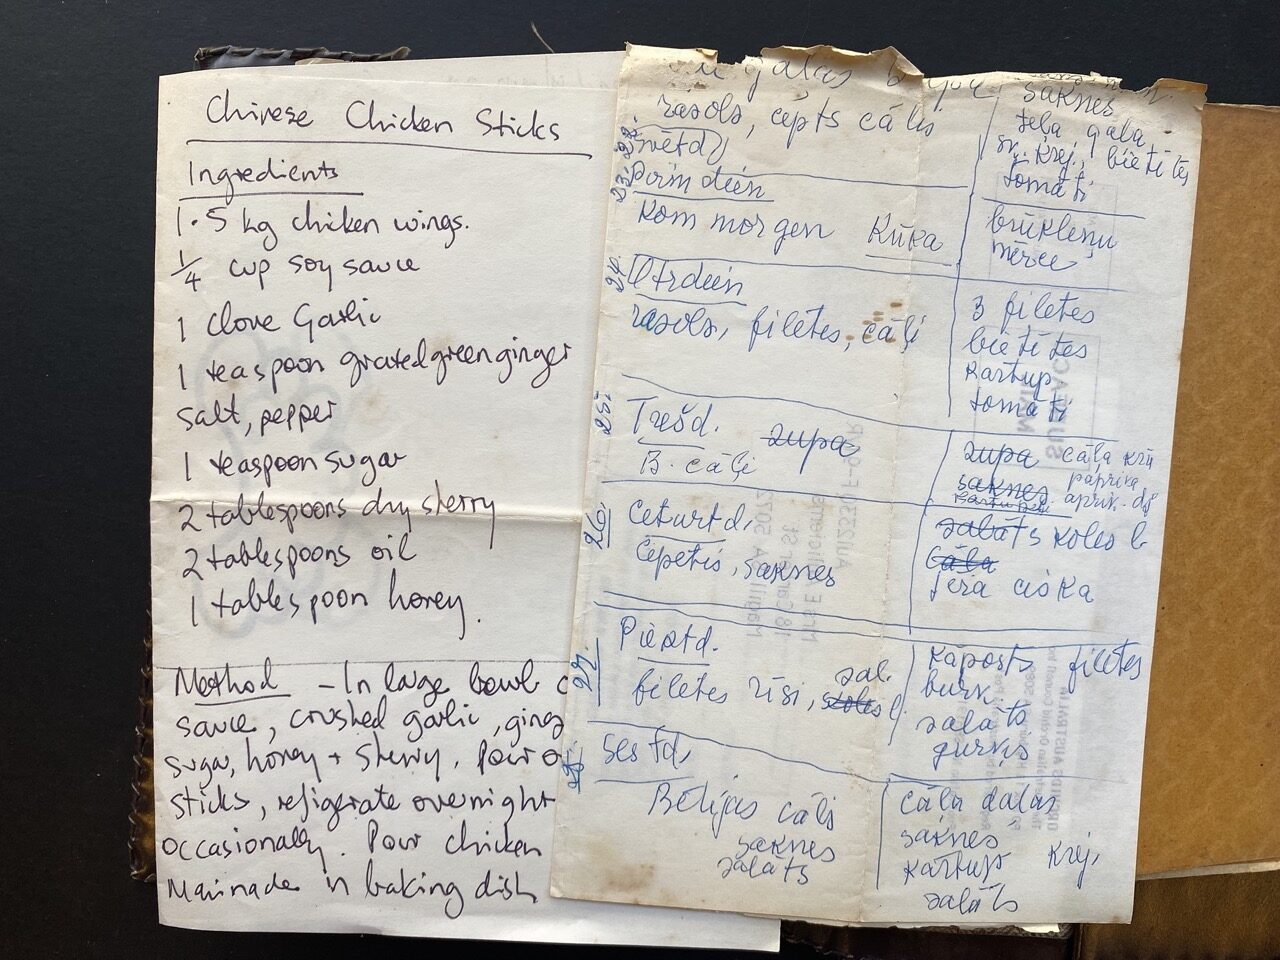 Chinese Chicken Sticks
Ingredients
1.5 kg chicken wings.
1/4 cup soy sauce
1 clove Garlic
1 teaspoon grated green ginger
salt, pepper
1 teaspoon sugar
2 tablespoons dry sherry
2 tablespoons oil
1 tablespoon honey.
Method - In large bowl
sauce, crushed garlic,
sugar, honey + sherry. Pour
sticks, refigerate overnight
occasionally. Pour chicken
Marinade in baking dish
galas
rasols, cepts cālis
22. Svētd
23. Pirmdien
Kom morgen Kūka
24. Otrdien
rasols, filetes, cāļi
25. Trešd. zupa
B. cāļi
26. Ceturtd.
Cepetis, saknes
27. Piektd.
filetes rīsi, sal.
28. Sestd.
Bētijas cāļi
saknes
salāts
saknes
jēla gaļa
sk. krēj., bietītes
tomāti
brūkleņu
mērce
3 filetes
bietītes
Kartup
tomāti
zupa cāļa krū
saknes paprika
aprik.
salāts Koles b
Cāļa
jēra ciska
Kāposts filetes
burk.
salāts
gurķis
cāļa daļas
saknes
Kartup krēj.
salāts